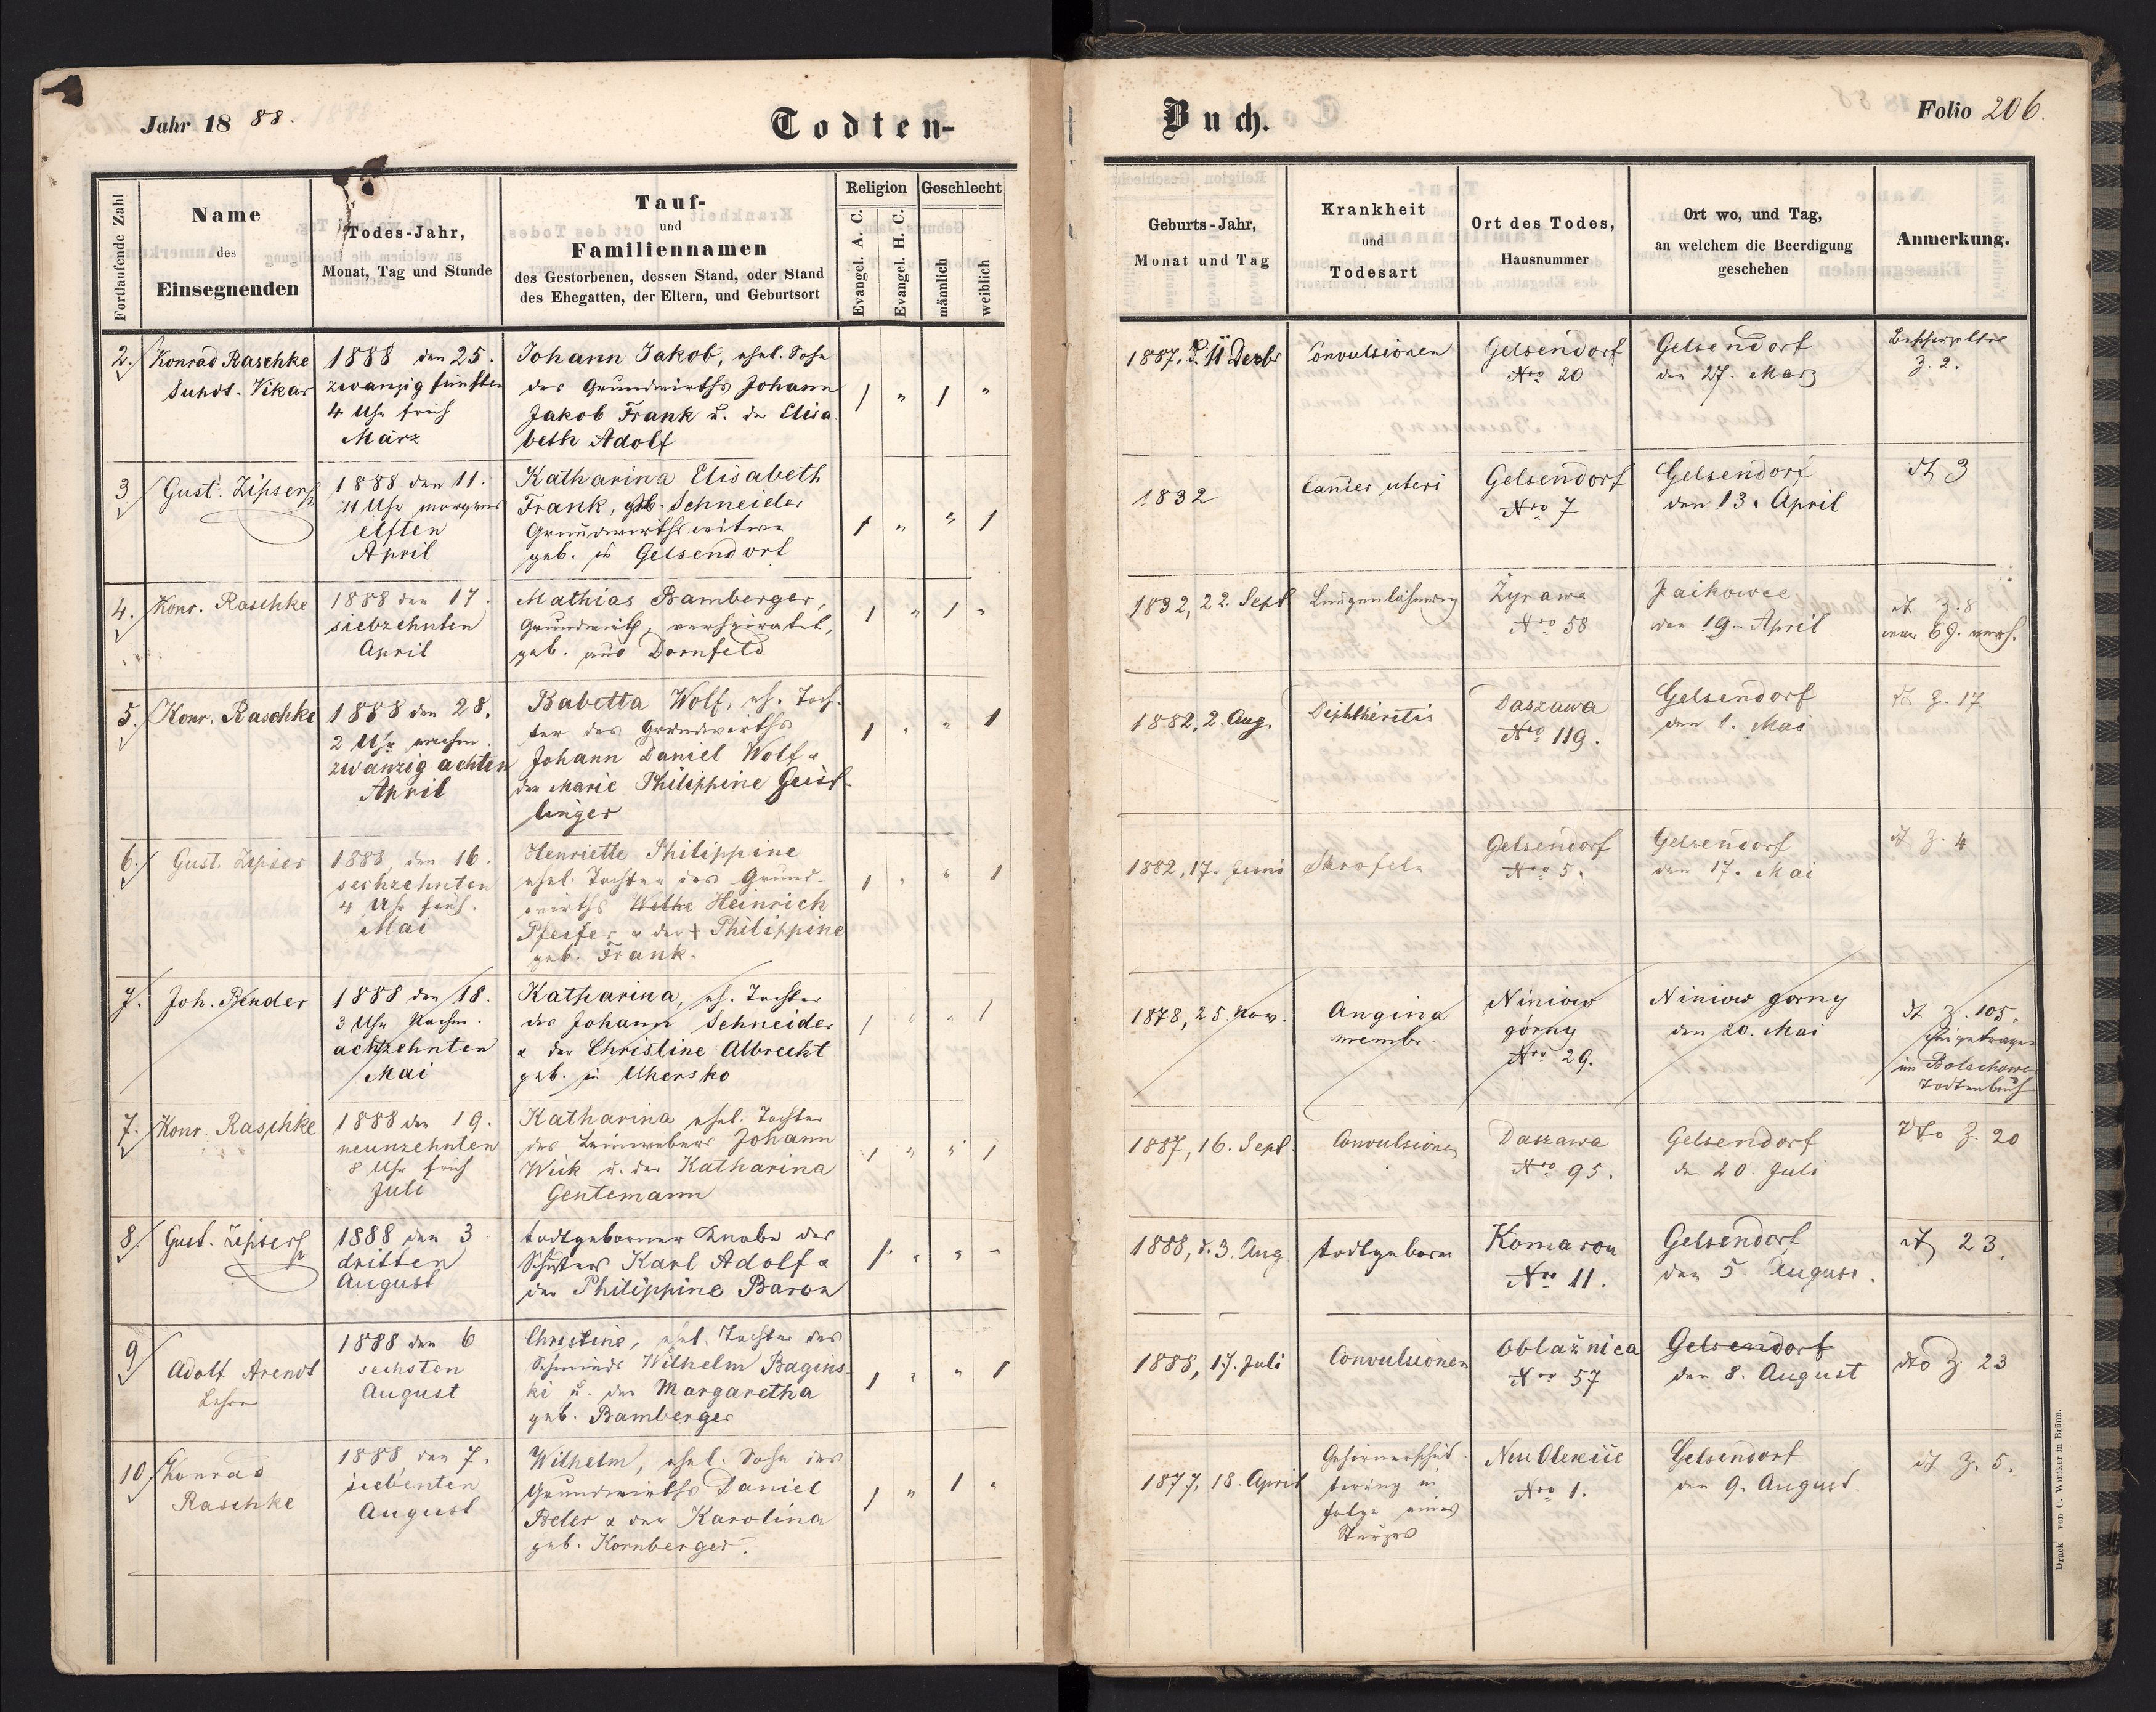 Jahr 18 88.
Todten-
Fortlaufende Zahl
Name
des
Einsegnenden
Todes-Jahr,
Monat, Tag und Stunde
Tauf-
und
Familiennamen
des Gestorbenen, dessen Stand, oder Stand
des Ehegatten, der Eltern, und Geburtsort
Religion
Evangel. A. C.
Evangel. H. C.
Geschlecht
männlich
weiblich
2.
Konrad Raschke
Vikar
1888 den 25.
zwanzig fünften
4 Uhr früh
März
Johann Jakob, ehel. Sohn
des Grundwirths Johann
Jakob Frank u. der Elisa
beth Adolf
1 " 1 "
3
Gust. Zipser
1888 den 11.
11 Uhr morgens
elften
April
Katharina Elisabeth
Frank, geb. Schneider
Grundwirthswitwe
geb. in Gelsendorf
1 " " 1
4.
Konr. Raschke
1888 den 17.
siebzehnten
April
Mathias Bamberger,
Grundwirth, verheiratet,
geb. aus Dornfeld
1 " 1 "
5.
Konr. Raschke
1888 den 28.
2 Uhr nachm.
zwanzig achten
April
Babetta Wolf, eh. Toch-
ter des Grundwirths
Johann Daniel Wolf &
der Marie Philippine Geist-
linger
1 " " 1
6.
Gust. Zipser
1888 den 16.
sechzehnten
4 Uhr früh.
Mai
Henriette Philippine
ehel. Tochter des Grund-
wirths Heinrich
Pfeifer & der + Philippine
geb. Frank.
1 " " 1
7.
Joh. Bender
1888 den 18.
3 Uhr Nachm.
achtzehnten
Mai
Katharina, eh. Tochter
des Johann Schneider
& der Christine Albrecht
geb. in Ukersko
1 " " 1
7.
Konr. Raschke
1888 den 19.
neunzehnten
8 Uhr früh
Juli
Katharina ehel. Tochter
des Leinwebers Johann
Weik u. der Katharina
Gentemann
1 " " 1
8.
Gust. Zipser
1888 den 3
dritten
August
todtgeborner Knabe des
Schusters Karl Adolf &
der Philippine Baron
1 " " "
9
Adolf Arendt
Lehrer
1888 den 6
sechsten
August
Christine, ehel. Tochter des
Schmieds Wilhelm Bagins-
ki u. der Margaretha
geb. Bamberger
1 " " 1
10.
Konrad
Raschke
1888 den 7.
siebenten
August
Wilhelm, ehel. Sohn des
Grundwirths Daniel
Beler & der Karolina
geb. Kornberger.
1 " 1 "
Buch.
Folio 206.
Geburts-Jahr,
Monat und Tag
Krankheit
und
Todesart
Ort des Todes,
Hausnummer
Ort wo, und Tag,
an welchem die Beerdigung
geschehen
Anmerkung.
1887, d. 11 Dezbr
Convulsionen
Gelsendorf
Nro 20
Gelsendorf
den 27. März
Z. 2.
1832
Cancer uteri
Gelsendorf
Nro 7
Gelsendorf
den 13. April
dt 3
1832, 22. Sept
Lungenlähmung
Żyrawa
Nro 58
Jaikowce
den 19. April
dt Z. 8
1882, 2. Aug.
Diphtheritis
Daszawa
Nro 119.
Gelsendorf
den 1. Mai
dt Z. 17
1882, 17. Juni
Skrofeln
Gelsendorf
Nro 5.
Gelsendorf
den 17. Mai
dt Z. 4
1878, 25. Nov.
Angina
membr.
Niniow
górny
Nro 29.
Niniow gorny
den 20. Mai
dt Z. 105.
eingetragen
im Bolechower
Todtenbuch
1887, 16. Sept.
Convulsionen
Daszawa
Nro 95.
Gelsendorf
den 20. Juli
dto Z. 20
1888, d. 3. Aug
todtgeboren
Komarow
Nro 11.
Gelsendorf
den 5 August.
dt 23.
1888, 17. Juli
Convulsionen
Oblaźnica
Nro 57
Gelsendorf
den 8. August
dto Z 23
1877, 18. April
Gehirnerschüt-
terung in
Folge eines
Sturzes
Neu Oleksic
Nro 1.
Gelsendorf
den 9. August.
dt Z. 5.
Druck von C. Winiker in Brünn.